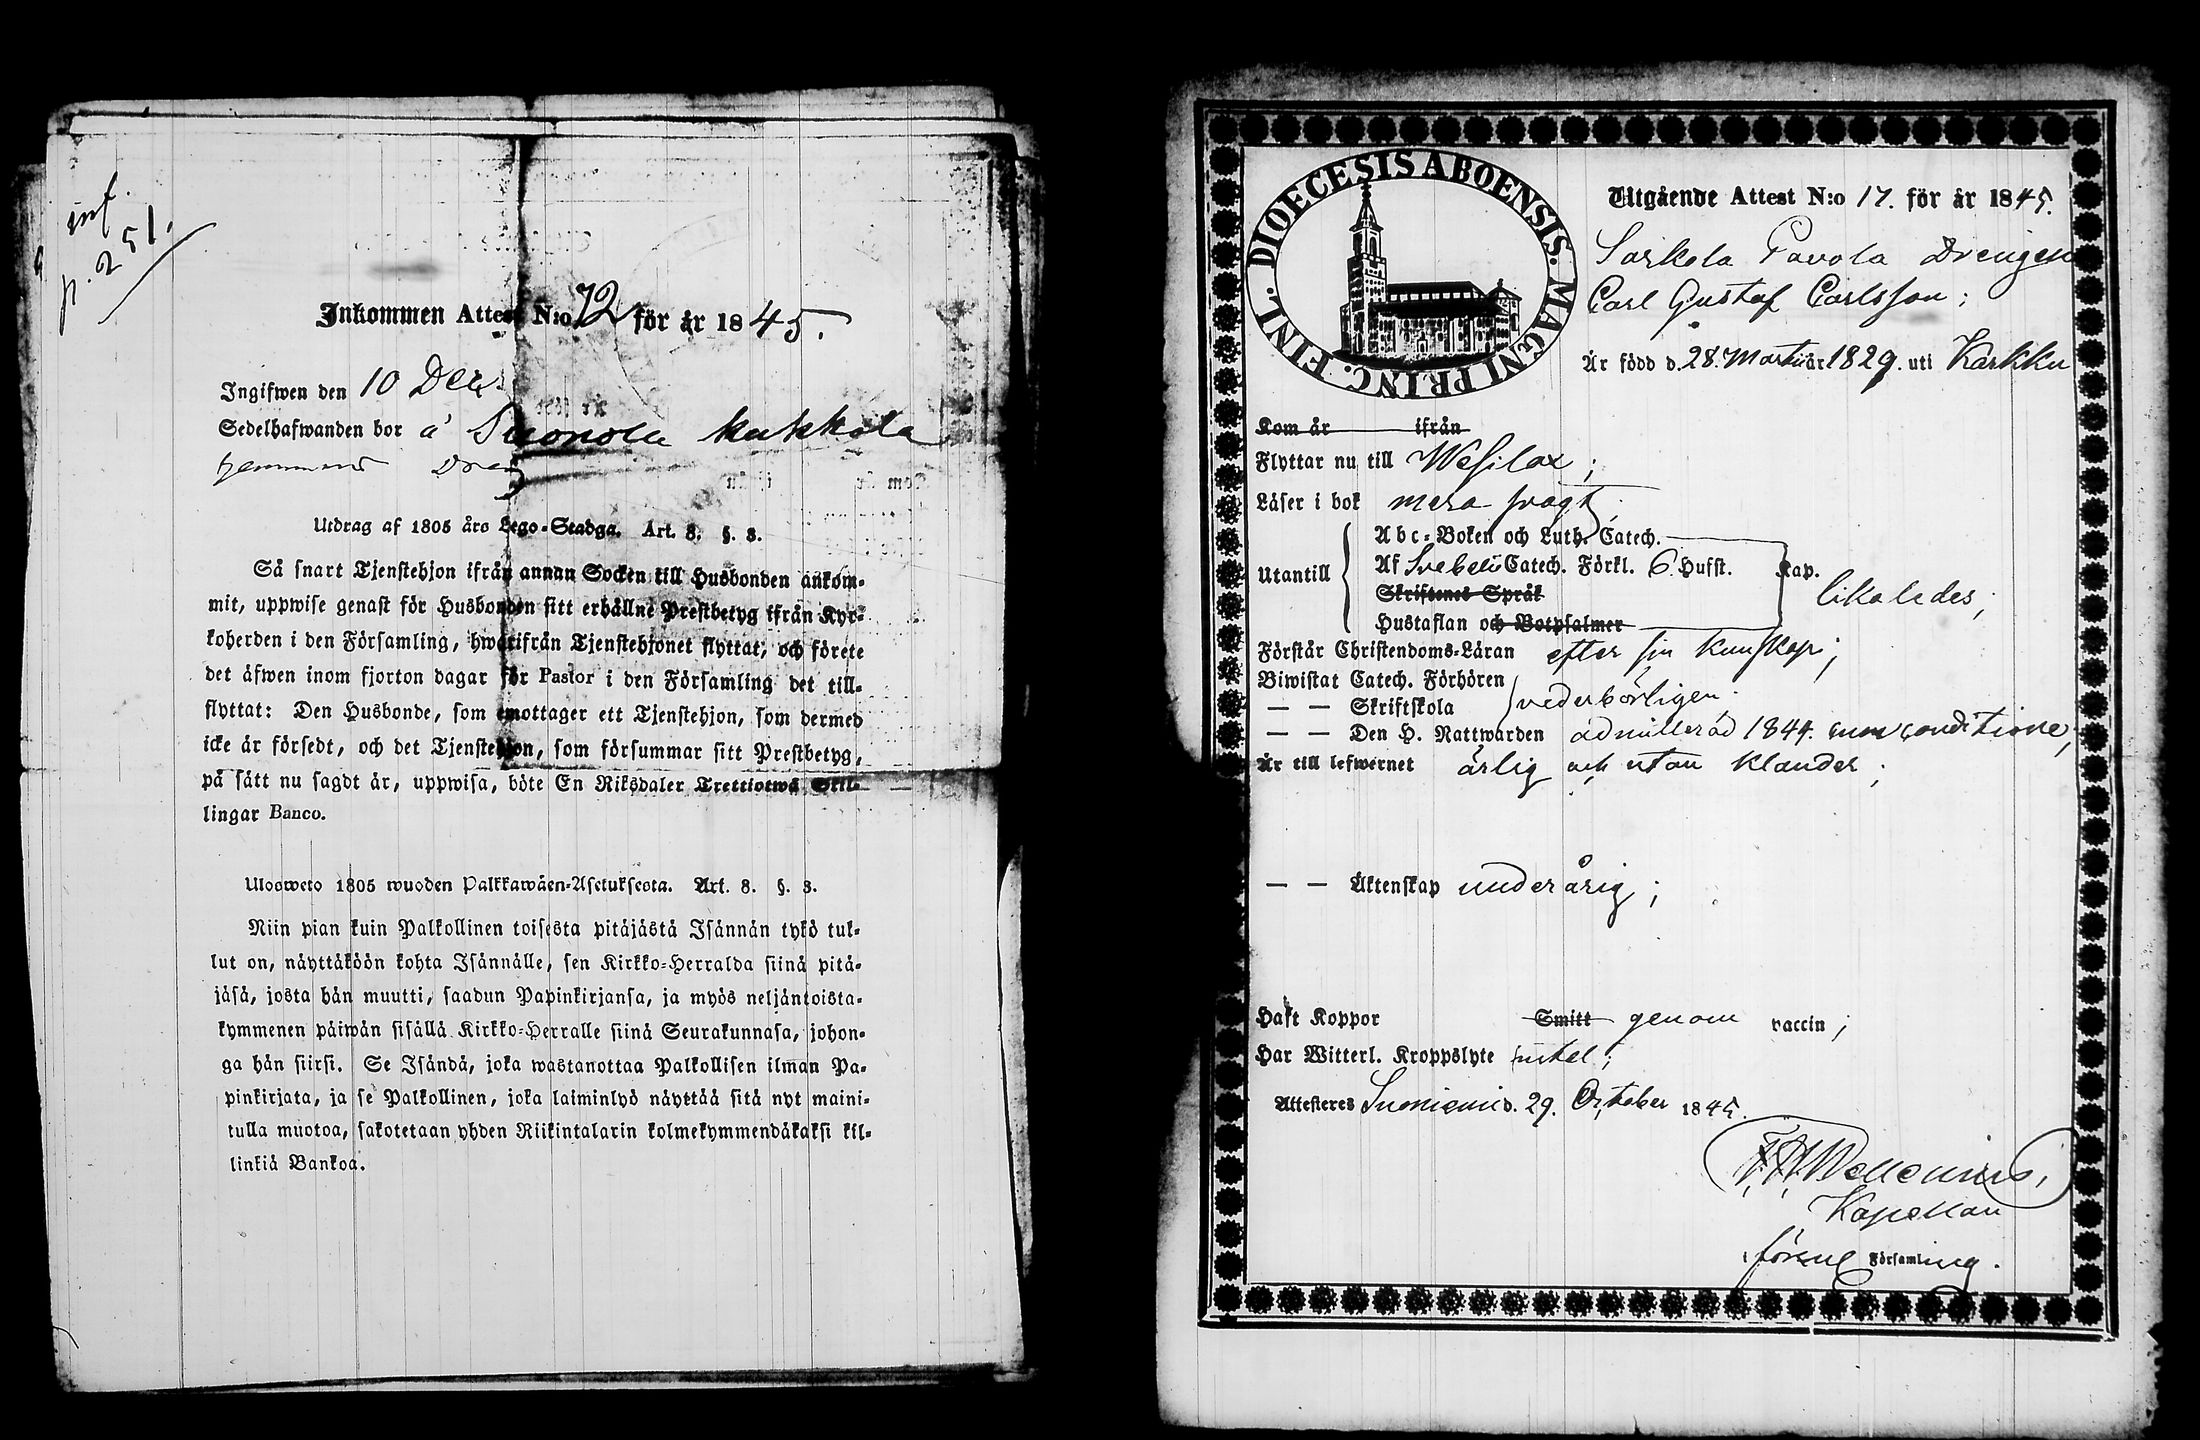 inf.
p. 251.
Inkommen Attest N:o 72 för år 1845.
Ingifwen den 10 Dec.
Sedelhafwanden bor å Suonola kukkola
hemmans Dreng
Utdrag af 1805 års Lego-Stadga. Art. 8. §. 3.
Så snart Tjenstehjon ifrån annan Socken till Husbonden ankom-
mit, uppwise genast för Husbonden sitt erhållne Prestbetyg ifrån Kyr-
koherden i den Församling, hwarifrån Tjenstehjonet flyttat, och förete
det äfwen inom fjorton dagar för Pastor i den Församling det till-
flyttat: Den Husbonde, som emottager ett Tjenstehjon, som dermed
icke är försedt, och det Tjenstehjon, som försummar sitt Prestbetyg,
på sätt nu sagdt är, uppwisa, böte En Riksdaler Trettiotwå Skil-
lingar Banco.
Ulosweto 1805 wuoden Palkkawäen-Asetuksesta. Art. 8. §. 3.
Niin pian kuin Palkollinen toisesta pitäjästä Isännän tykö tul-
lut on, näyttäköön kohta Isännälle, sen Kirkko-Herralda siinä pitä-
jäsä, josta hän muutti, saadun Papinkirjansa, ja myös neljäntoista-
kymmenen päiwän sisällä Kirkko-Herralle siinä Seurakunnasa, johon-
ga hän siirsi. Se Isändä, joka wastanottaa Palkollisen ilman Pa-
pinkirjata, ja se Palkollinen, joka laiminlyö näyttää sitä nyt maini-
tulla muotoa, sakotetaan yhden Riikintalarin kolmekymmendäkaksi kil-
linkiä Bankoa.
DIOECESIS ABOENSIS. MAGNI PRINC. FINL.
Utgående Attest N:o 17. för år 1845.
Sarkola Pavola Drengen
Carl Gustaf Carlsson;
Är född d. 28. Martii år 1829. uti Karkku
Kom år ifrån
Flyttar nu till Wesilax;
Läser i bok mera svagt;
Abc-Boken och Luth. Catech.
Utantill Af Svebelii Catech. Förkl. 6 Hufst. Kap.
Skriftenes Språk likaledes;
Hustaflan och Botpsalmer
Förstår Christendoms-Läran efter sin kunskap;
Biwistat Catech. Förhören
— — Skriftskola vederbörligen;
— — Den H. Nattwarden admitterad 1844. cum conditione;
Är till lefwernet ärlig och utan klander;
— — Äktenskap underårig;
Haft Koppor Smitt genom vaccin;
Har Witterl. Kroppslyte intet;
Attesteres Suoniemi d. 29. October 1845.
Kapellan
i förenl Församling.